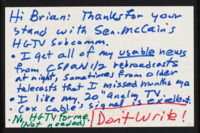 Hi Brian: Thanks for your
stand with Sen. McCain's
HGTV Subcomm.
• I get all of my usable news
from C-SPAN 1/2 rebroadcasts
at night, sometimes from older
telecasts that I missed months ago
• I like my "Analog TV."
• Cox Cable's signal is excellent.
• No HGTV for me. Don't Write!
(Not needed)